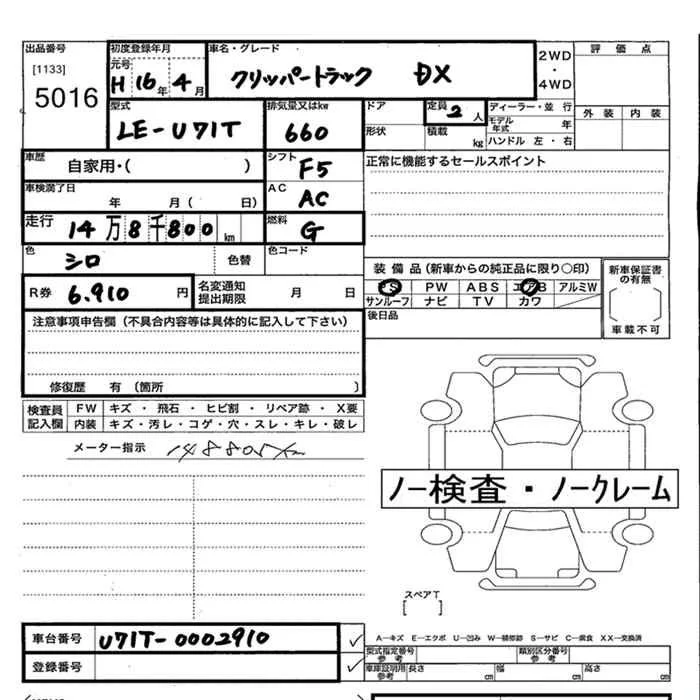 出品番号 初度登録年月 車名・グレード 2WD・4WD 評価点
[1133] 元号 H 16年 4月 クリッパートラック DX
5016 型式 排気量又はkw ドア 定員 2人 ディーラー・並行 外装 内装
LE-U71T 660 形状 積載 kg モデル年式 年
ハンドル 左・右
車歴 自家用・( ) シフト F5 正常に機能するセールスポイント
車検満了日 年 月( 日) AC AC
走行 14万8千800km 燃料 G
色 シロ 色替 色コード
装備品(新車からの純正品に限り○印) 新車保証書の有無
R券 6.910円 名変通知提出期限 月 日 PS PW ABS エアB アルミW
サンルーフ ナビ TV カワ
注意事項申告欄(不具合内容等は具体的に記入して下さい) 後日品 車載不可
修復歴 有(箇所 )
検査員記入欄 FW キズ・飛石・ヒビ割・リペア跡・X要
内装 キズ・汚レ・コゲ・穴・スレ・キレ・破レ
メーター指示
ノー検査・ノークレーム
スペアT
[ ]
車台番号 U71T-0002910 ✓ A-キズ E-エクボ U-凹み W-補修跡 S-サビ C-腐食 XX-交換済
型式指定番号 参考 類別区分番号 参考
登録番号 ✓ 車庫証明用 参考 長さ cm 幅 cm 高さ cm